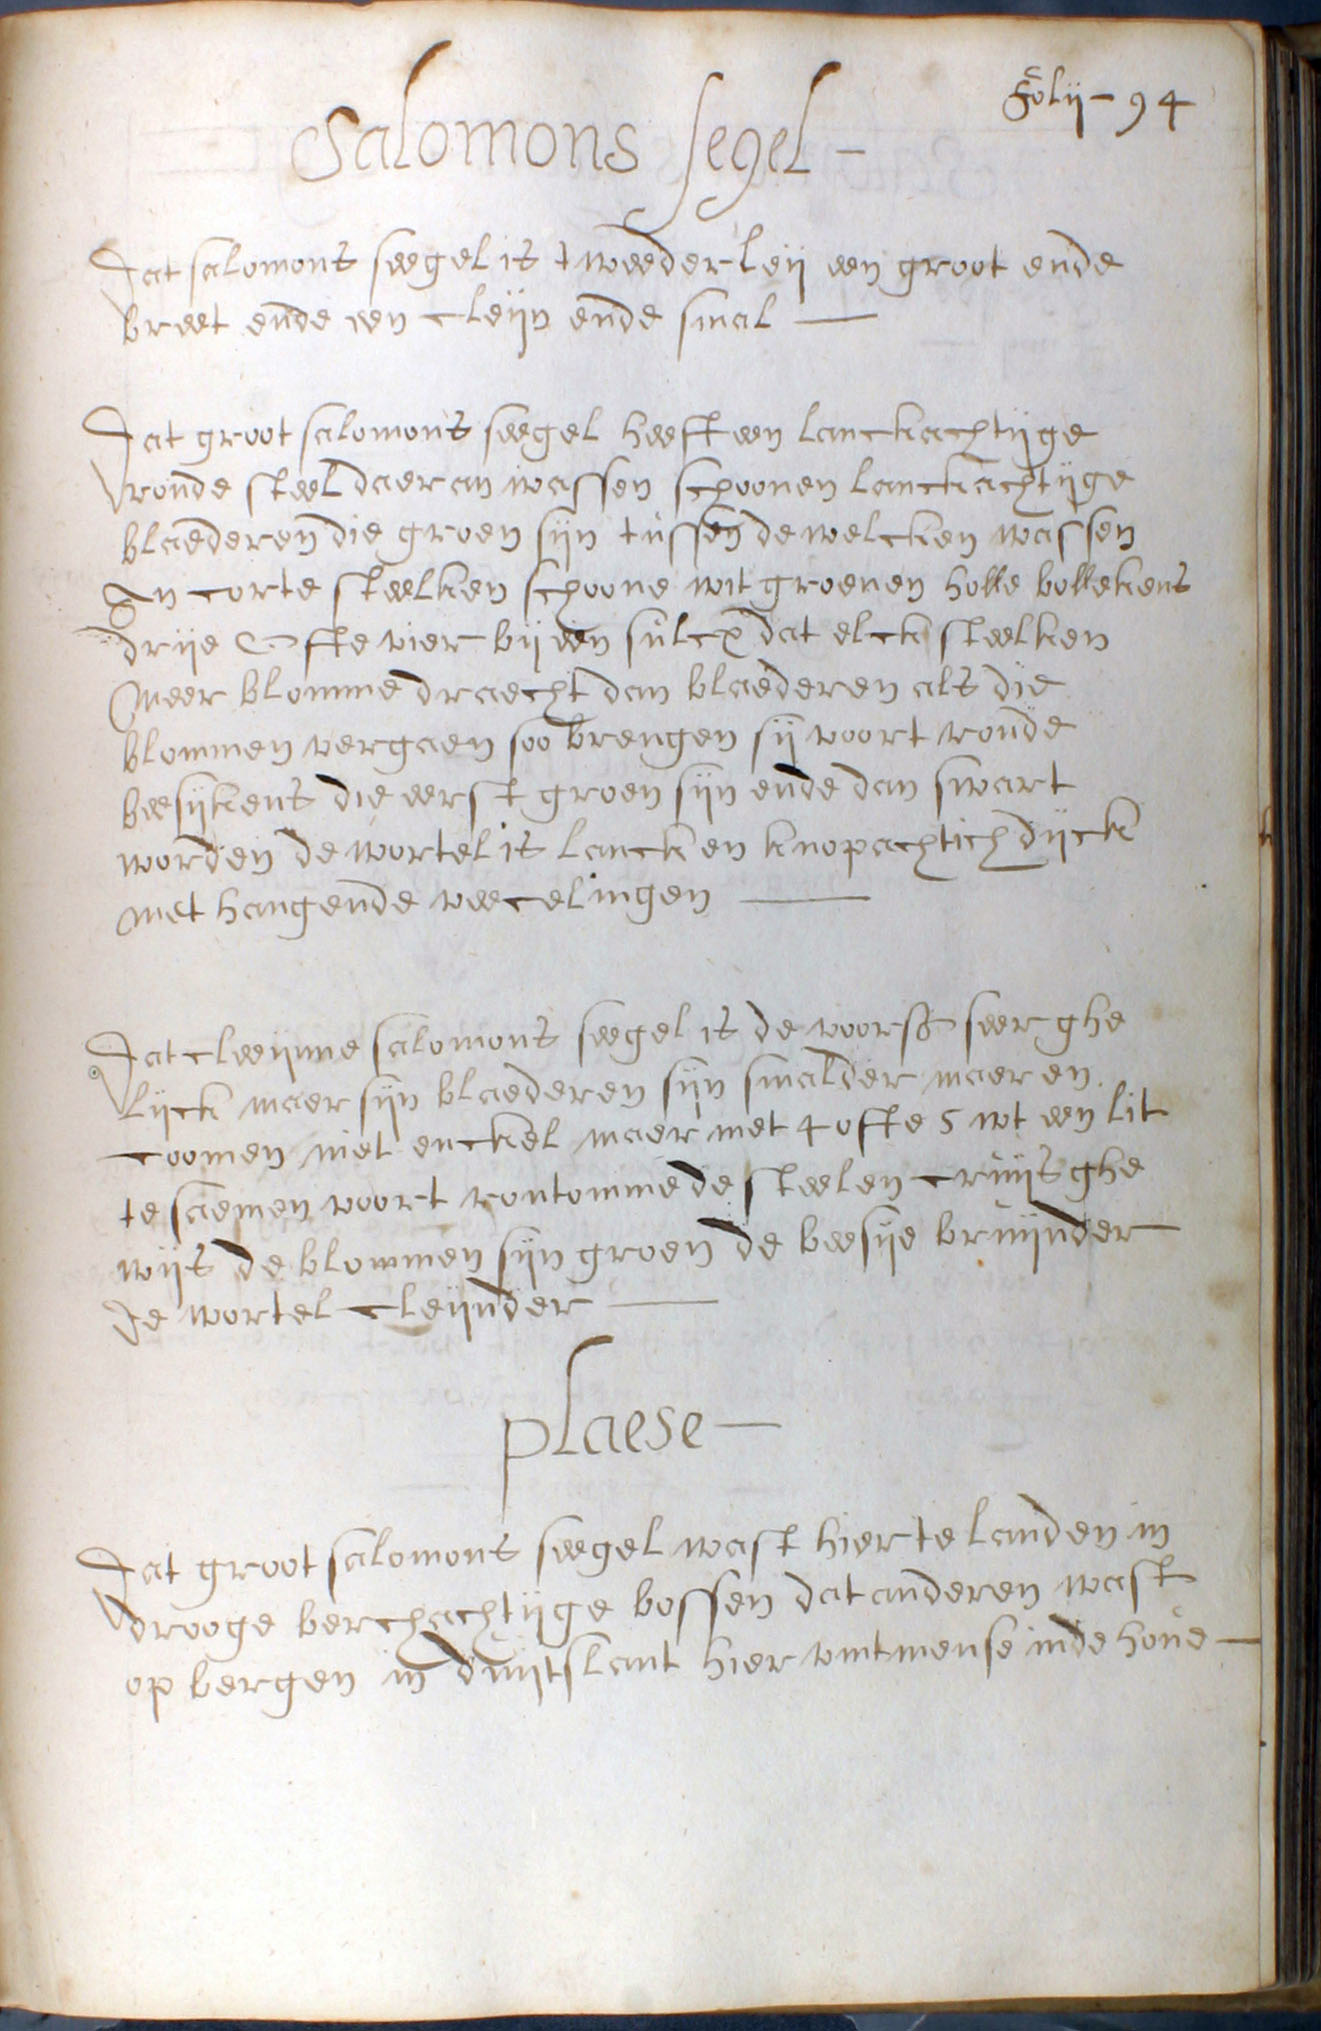 Folij - 94
Salomons segel -
Dat salomons seegel is tweederleij een groot ende
breet ende een cleijn ende smal
Dat groot salomons seegel heeft een lanckachtijge
ronde steel daer an wassen schoonen lanckachtijge
blaederen die groen sijn tussen de welcken wassen
An corte steelken schoone wit groenen holle bollekens
drije Ofte vier bij een sulcx dat elck steelken
Meer blomme draecht dan blaederen als die
blommen vergaen soo brengen sij voort ronde
beesijkens die eerst groen sijn ende dan swart
worden de wortel is lanck en knopachtich dijck
met hangende veecelingen
Dat cleeijnne salomons seegel is de voors seer ghe
lijck maer sijn blaederen sijn smalder maer en
coomen niet enckel maer met 4 ofte 5 wt een lit
te saemen voort rontomme de steelen cruijs ghe
wijs de blommen sijn groen de beesije bruijnder
De wortel cleijnder
plaese -
Dat groot salomons seegel wast hier te landen in
drooge berchachtijge bossen dat anderen wast
op bergen in duijtslant hier vintmense inde hove -